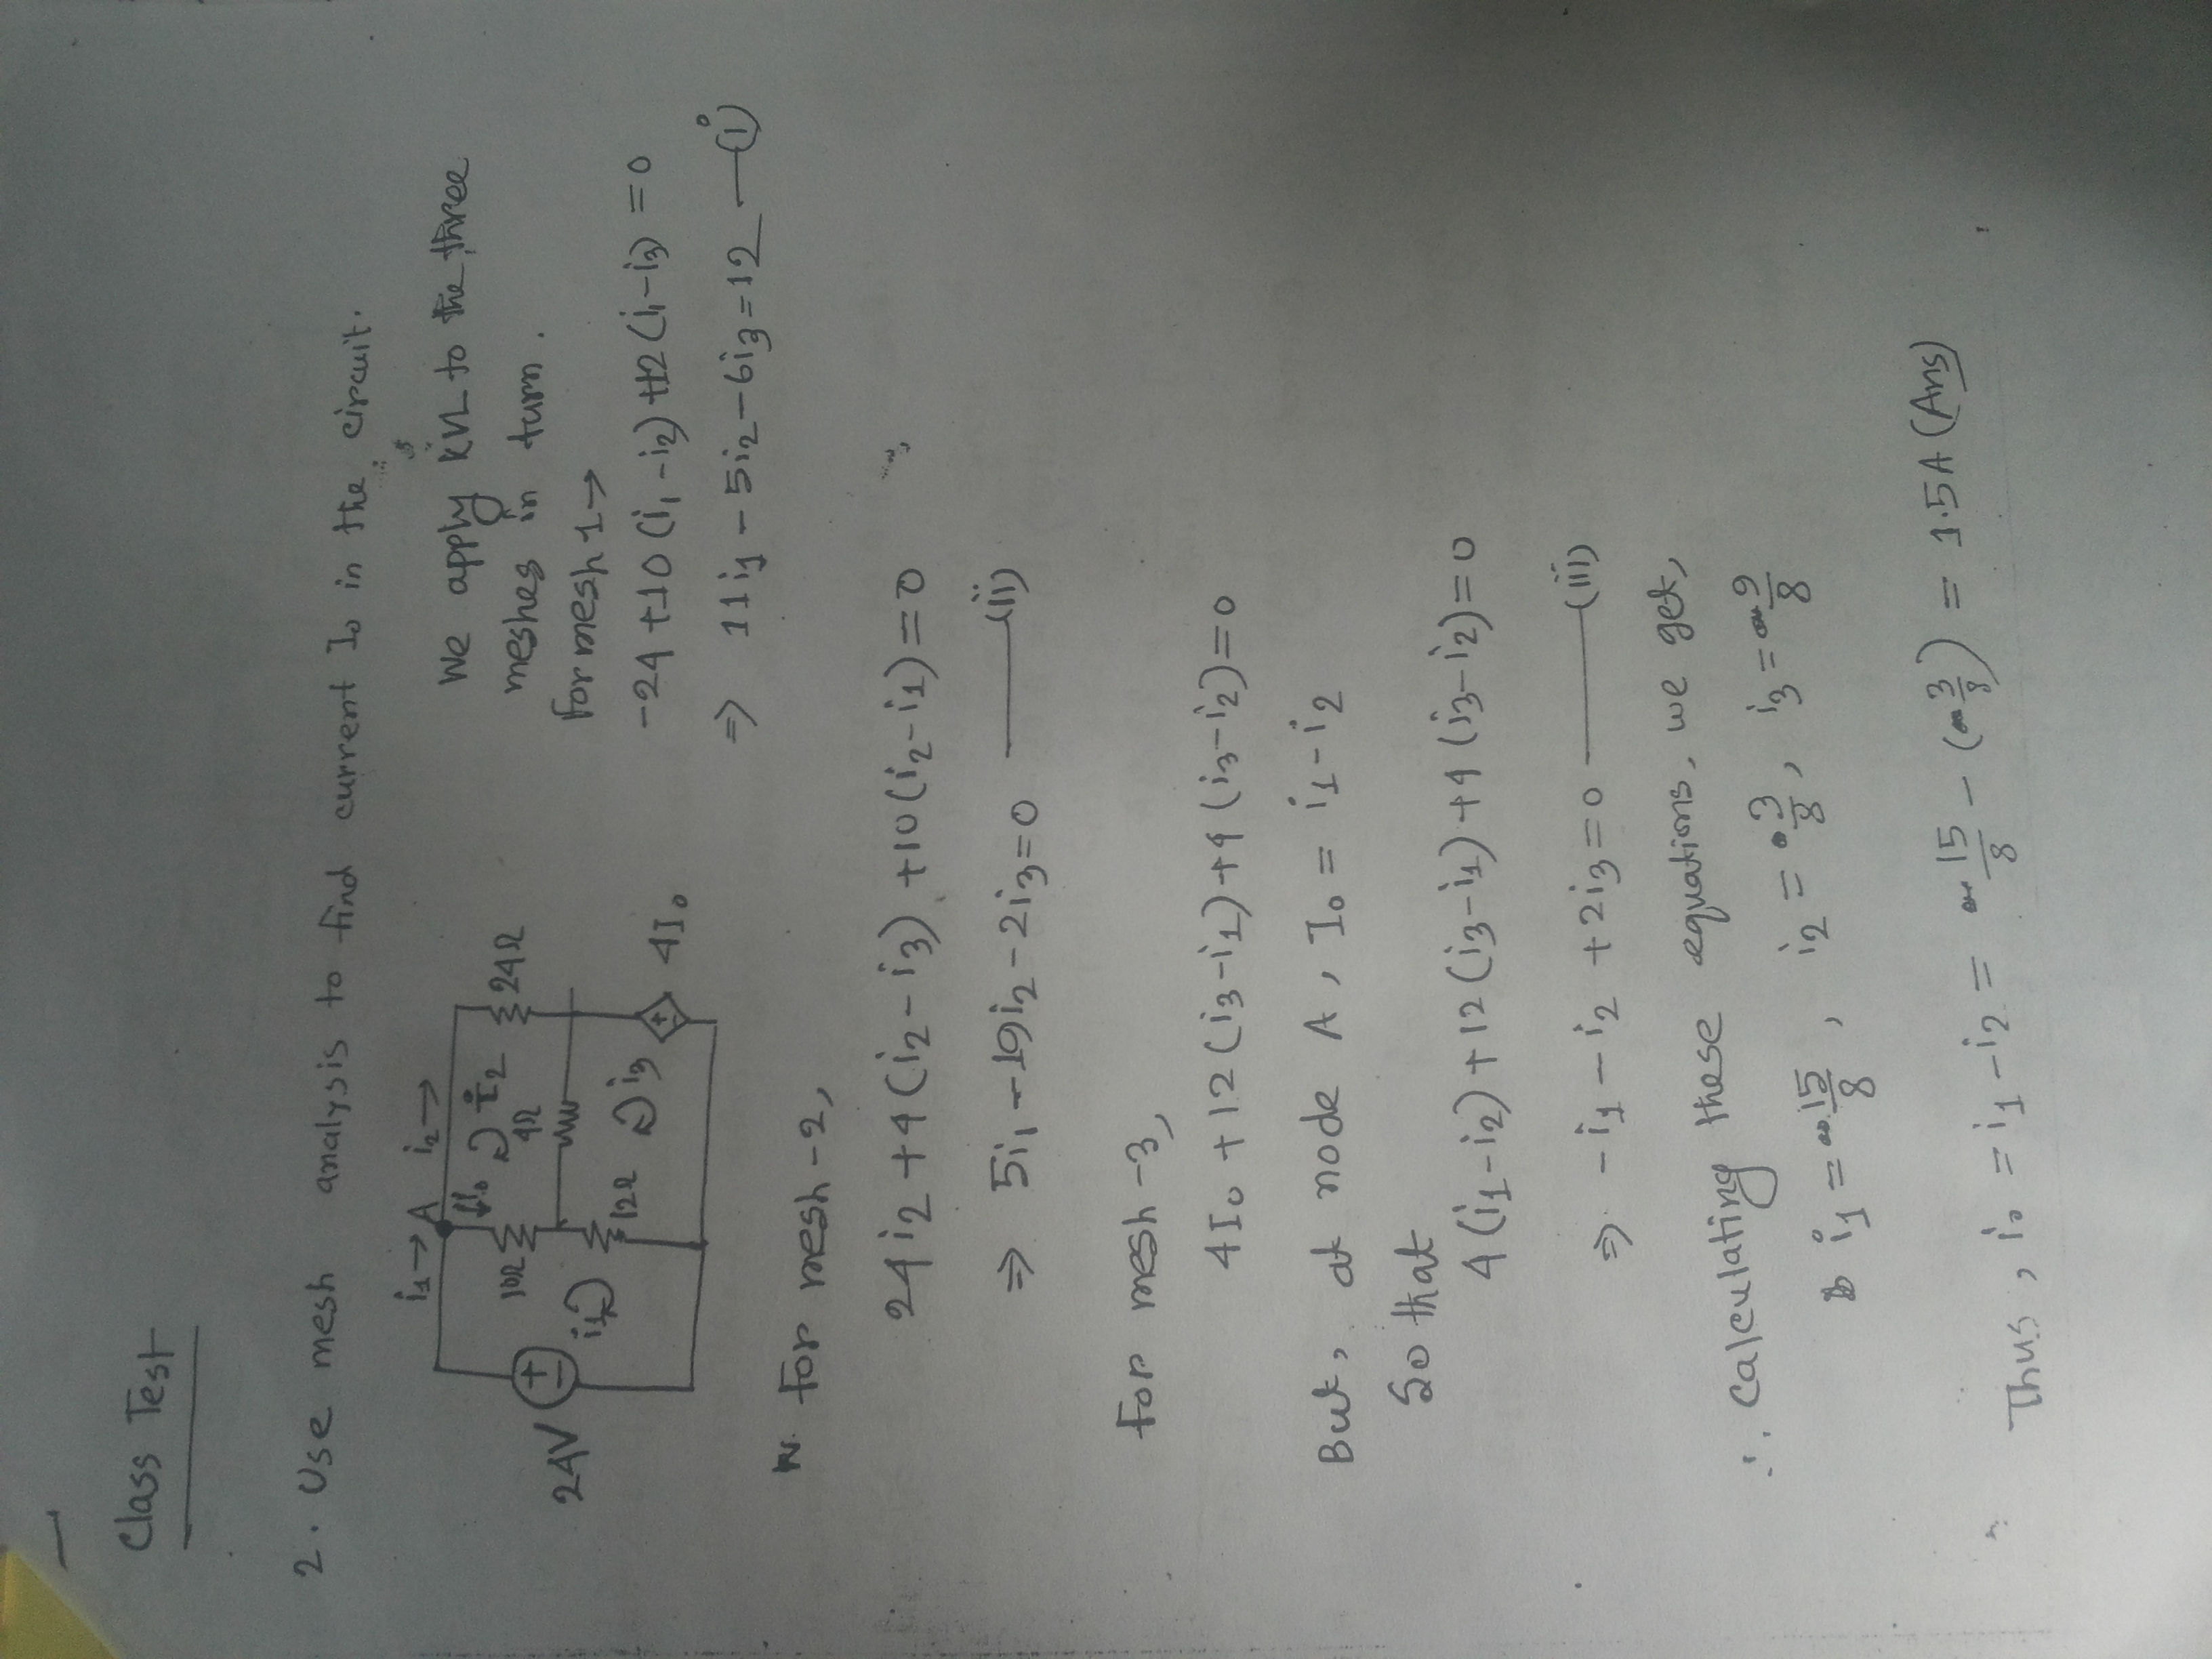 Class Test
2. Use mesh analysis to find current I₀ in the circuit.
i₁→ A i₂→
I₀
i₂
10Ω
4Ω
24Ω
24V
i₁
12Ω
i₃
4I₀
We apply KVL to the three
meshes in turn.
For mesh 1→
-24+10(i₁-i₂)+12(i₁-i₃)=0
⇒ 11i₁-5i₂-6i₃=12 —(i)
For mesh-2,
24i₂+4(i₂-i₃)+10(i₂-i₁)=0
⇒ 5i₁-19i₂-2i₃=0 —(ii)
For mesh-3,
4I₀+12(i₃-i₁)+4(i₃-i₂)=0
But, at node A, I₀=i₁-i₂
So that
4(i₁-i₂)+12(i₃-i₁)+4(i₃-i₂)=0
⇒ -i₁-i₂+2i₃=0 —(iii)
∴ Calculating these equations, we get,
i₁=15/8, i₂=3/8, i₃=9/8
Thus, i₀=i₁-i₂=15/8-(3/8)=1.5A (Ans)